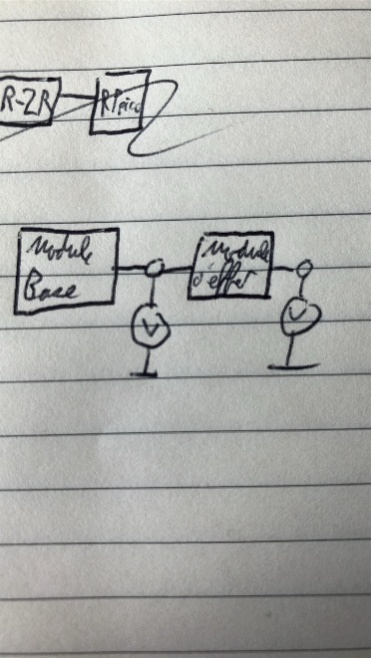 R-2R
RPico
Module
Base
Module
d'effet
V
V